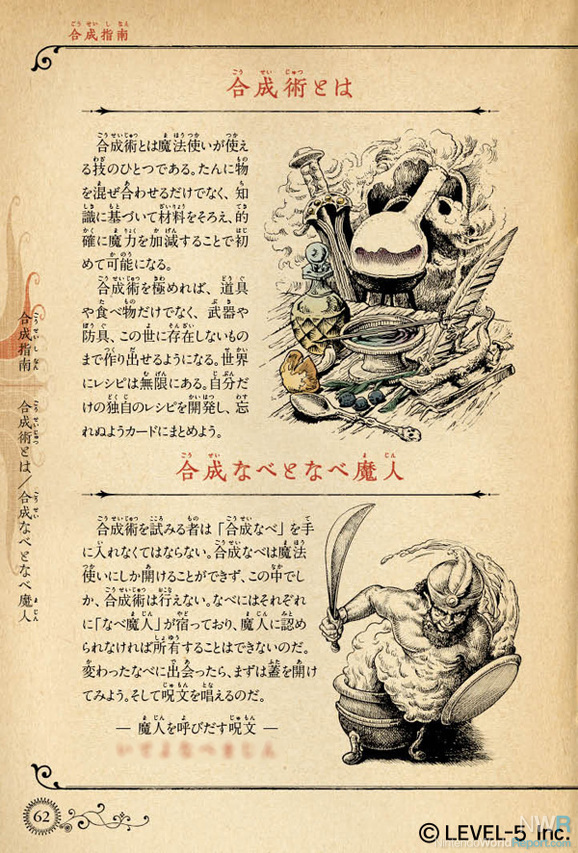 合成指南
合成術とは
合成術とは魔法使いが使え
る技のひとつである。たんに物
を混ぜ合わせるだけでなく、知
識に基づいて材料をそろえ、的
確に魔力を加減することで初
めて可能になる。
合成術を極めれば、道具
や食べ物だけでなく、武器や
防具、この世に存在しないもの
まで作り出せるようになる。世界
にレシピは無限にある。自分だ
けの独自のレシピを開発し、忘
れぬようカードにまとめよう。
合成なべとなべ魔人
合成術を試みる者は「合成なべ」を手
に入れなくてはならない。合成なべは魔法
使いにしか開けることができず、この中でし
か、合成術は行えない。なべにはそれぞれ
に「なべ魔人」が宿っており、魔人に認め
られなければ所有することはできないのだ。
変わったなべに出会ったら、まずは蓋を開け
てみよう。そして呪文を唱えるのだ。
― 魔人を呼びだす呪文 ―
合成指南 合成術とは／合成なべとなべ魔人
62
NWR
NintendoWorldReport.com
© LEVEL-5 Inc.